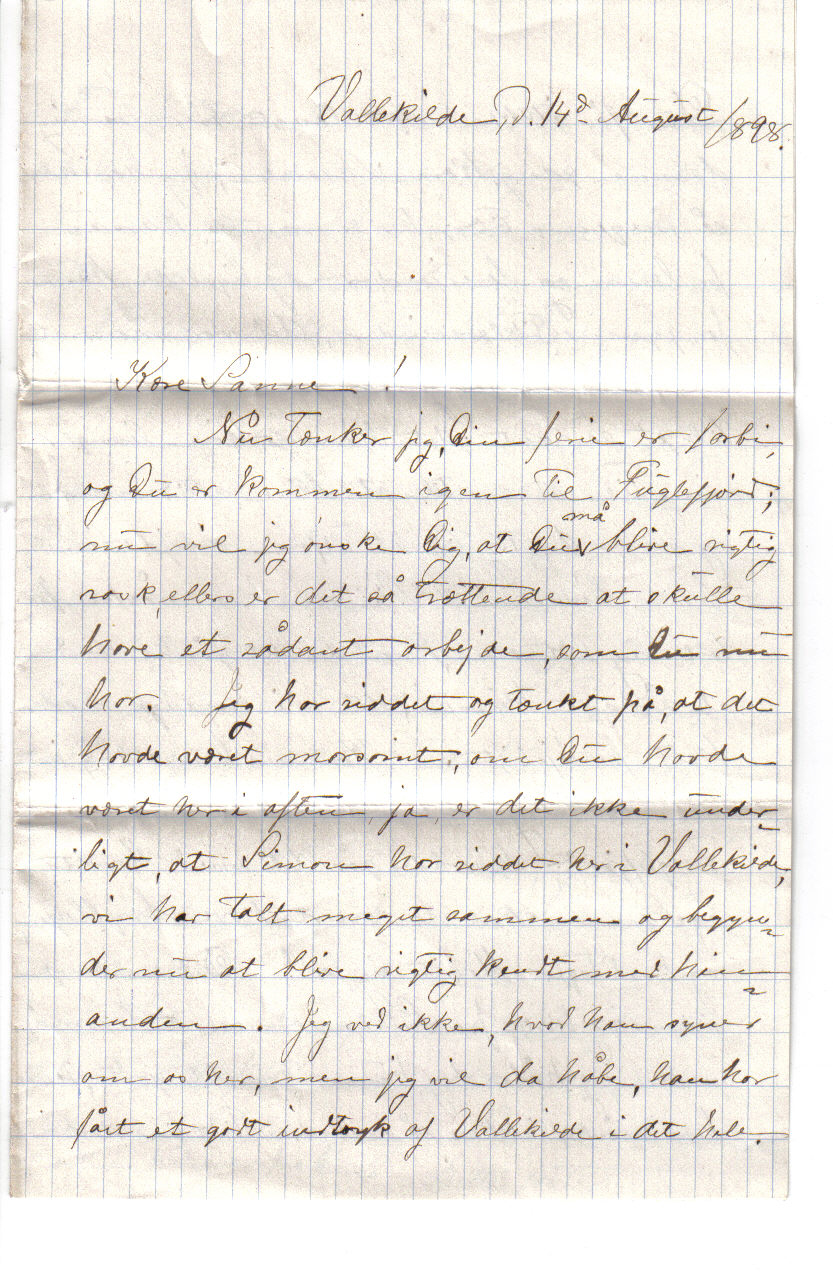 Vallekilde, d. 14d August 1898.
Kære Sanne!
Nu tænker jeg, Din ferie er forbi,
og Du er kommen igen til Fuglefjord;
nu vil jeg ønske Dig, at Du må blive rigtig
rask, ellers er det så trættende at skulle
have et sådant arbejde, som Du nu
har. Jeg har siddet og tænkt på, at det
havde været morsomt, om Du havde
været her i aften, ja, er det ikke under=
ligt, at Simon har siddet her i Vallekilde,
vi har talt meget sammen og begyn=
der nu at blive rigtig kendt med hin=
anden. Jeg ved ikke, hvad han synes
om os her, men jeg vil da håbe, han har
fået et godt indtryk af Vallekilde i det hele.